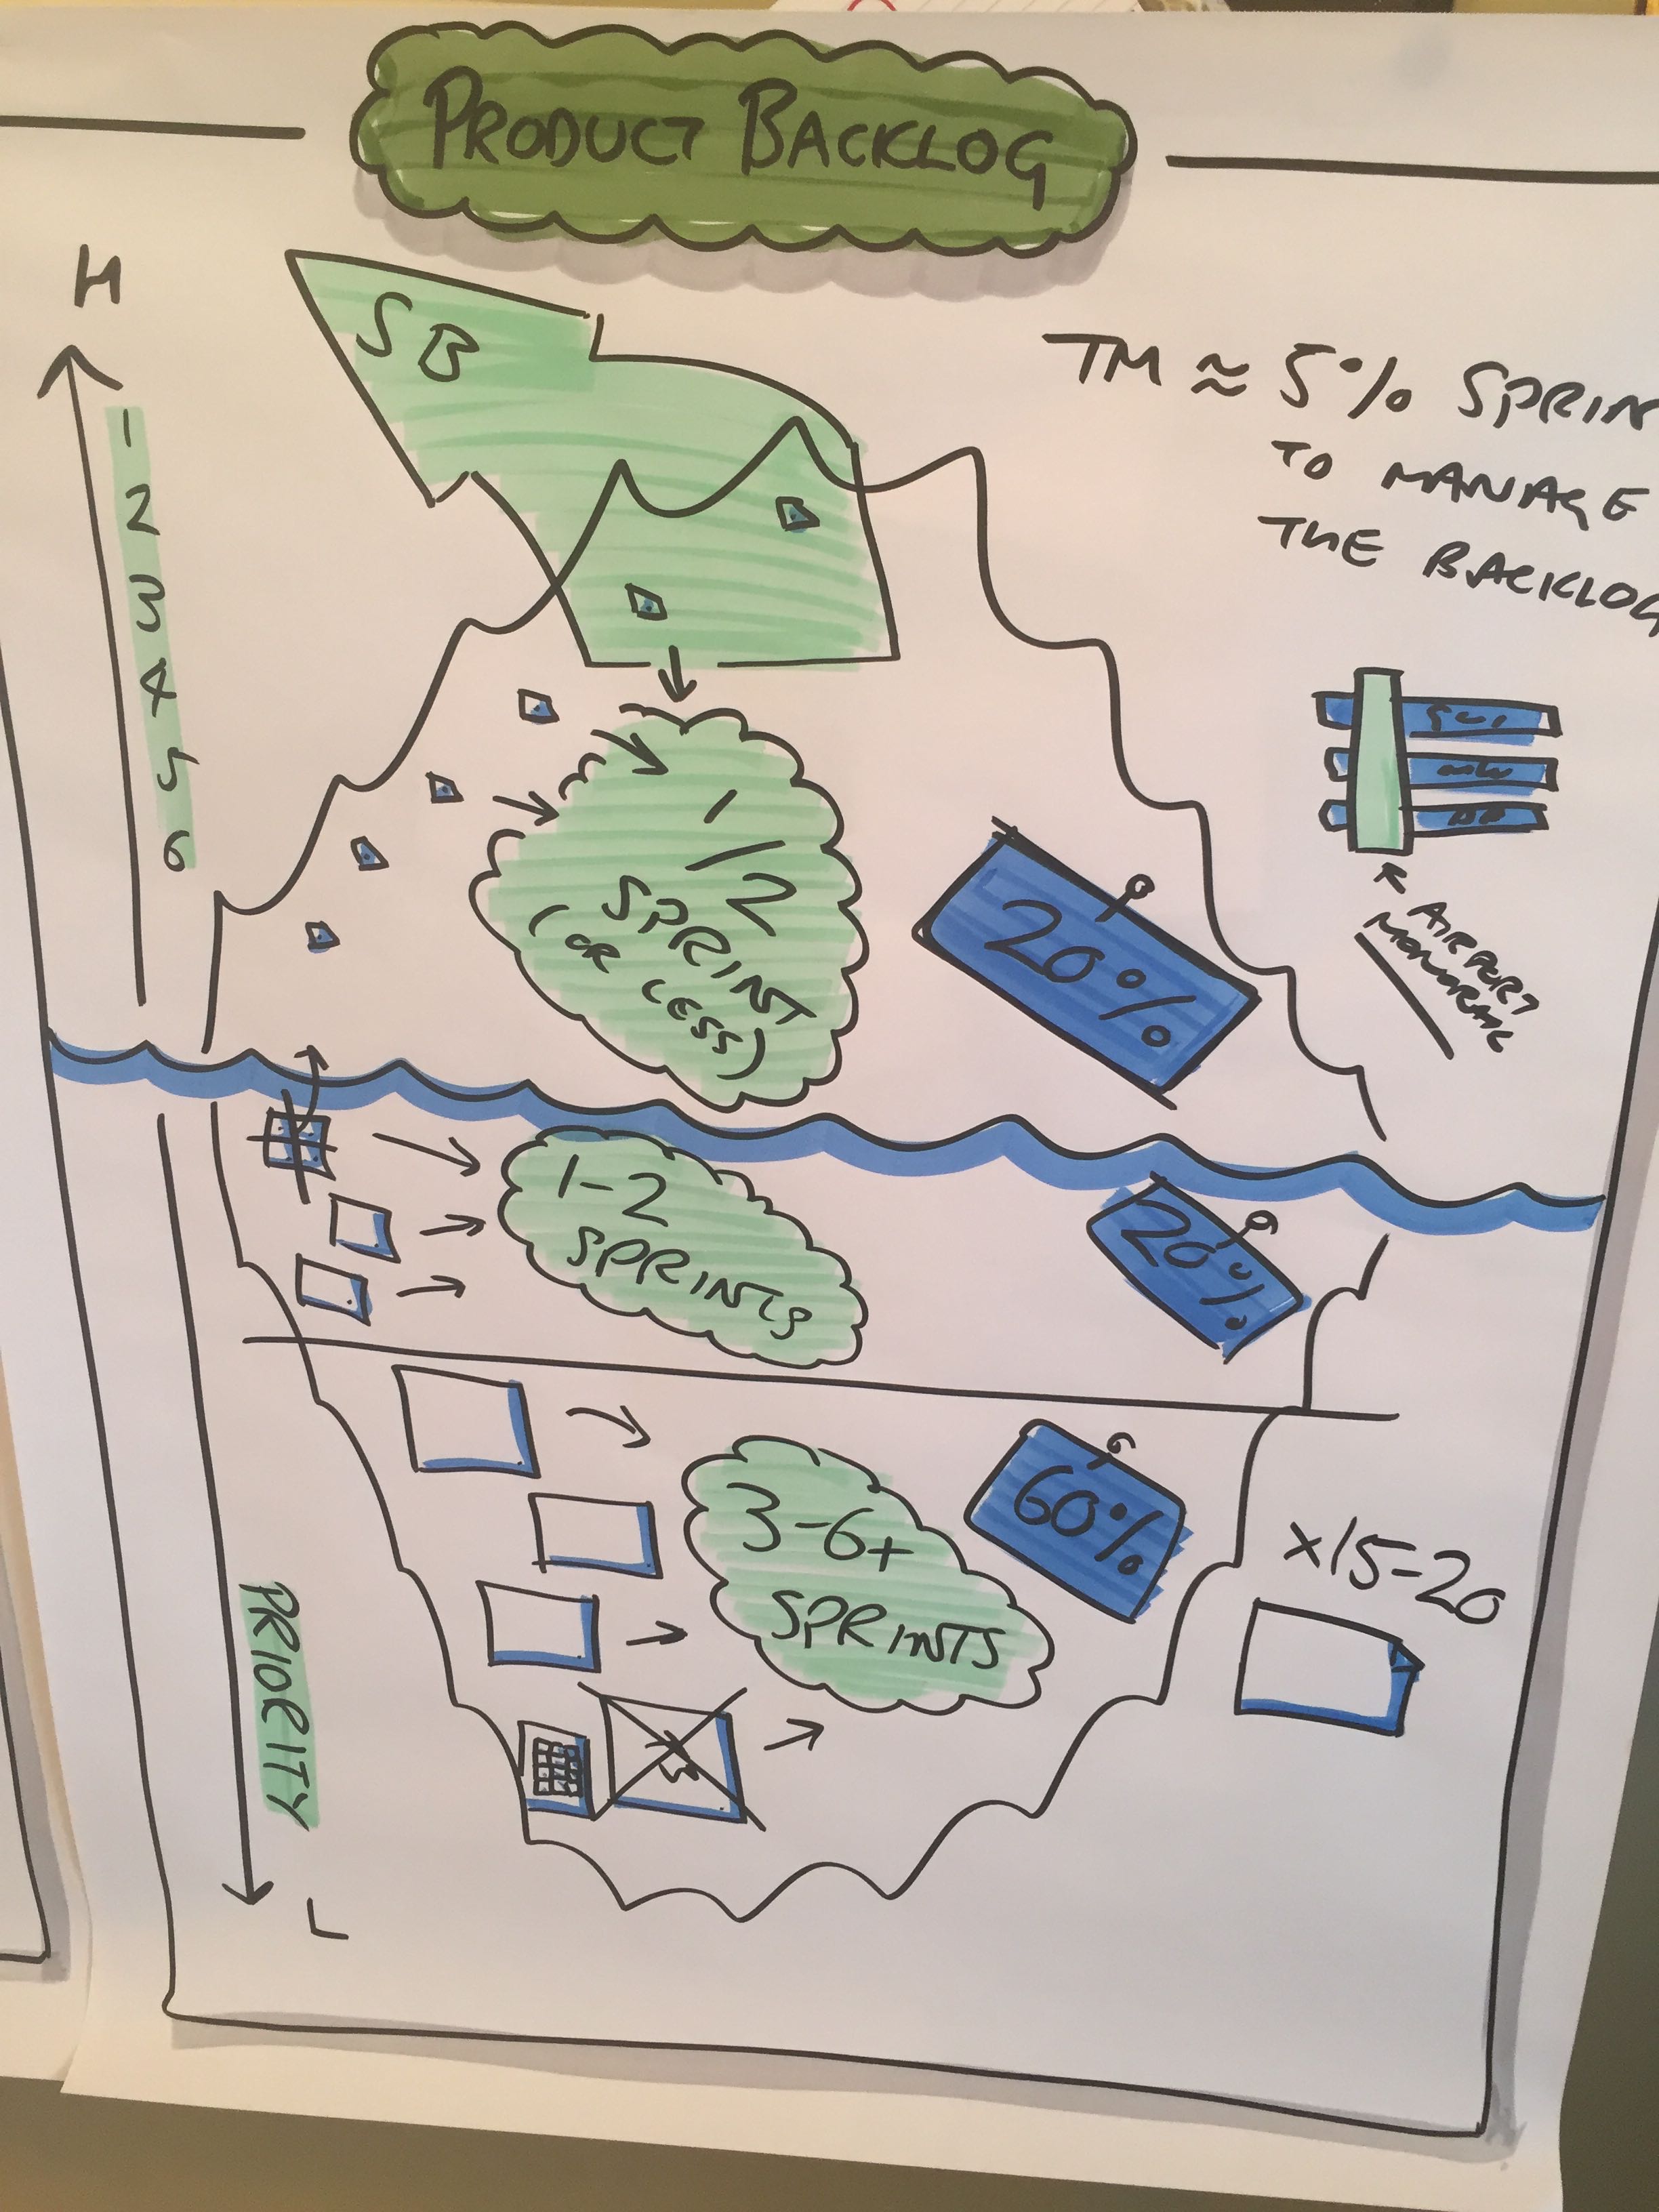 PRODUCT BACKLOG
H
SB
TM ≈ 5% SPRIN
TO MANAGE
THE BACKLOG
1
2
3
4
5
6
GUI
DB
AIRPORT
MONORAIL
1/2
SPRINT
(OR LESS)
20%
1-2
SPRINTS
20%
3-6+
SPRINTS
60%
x15-20
PRIORITY
L